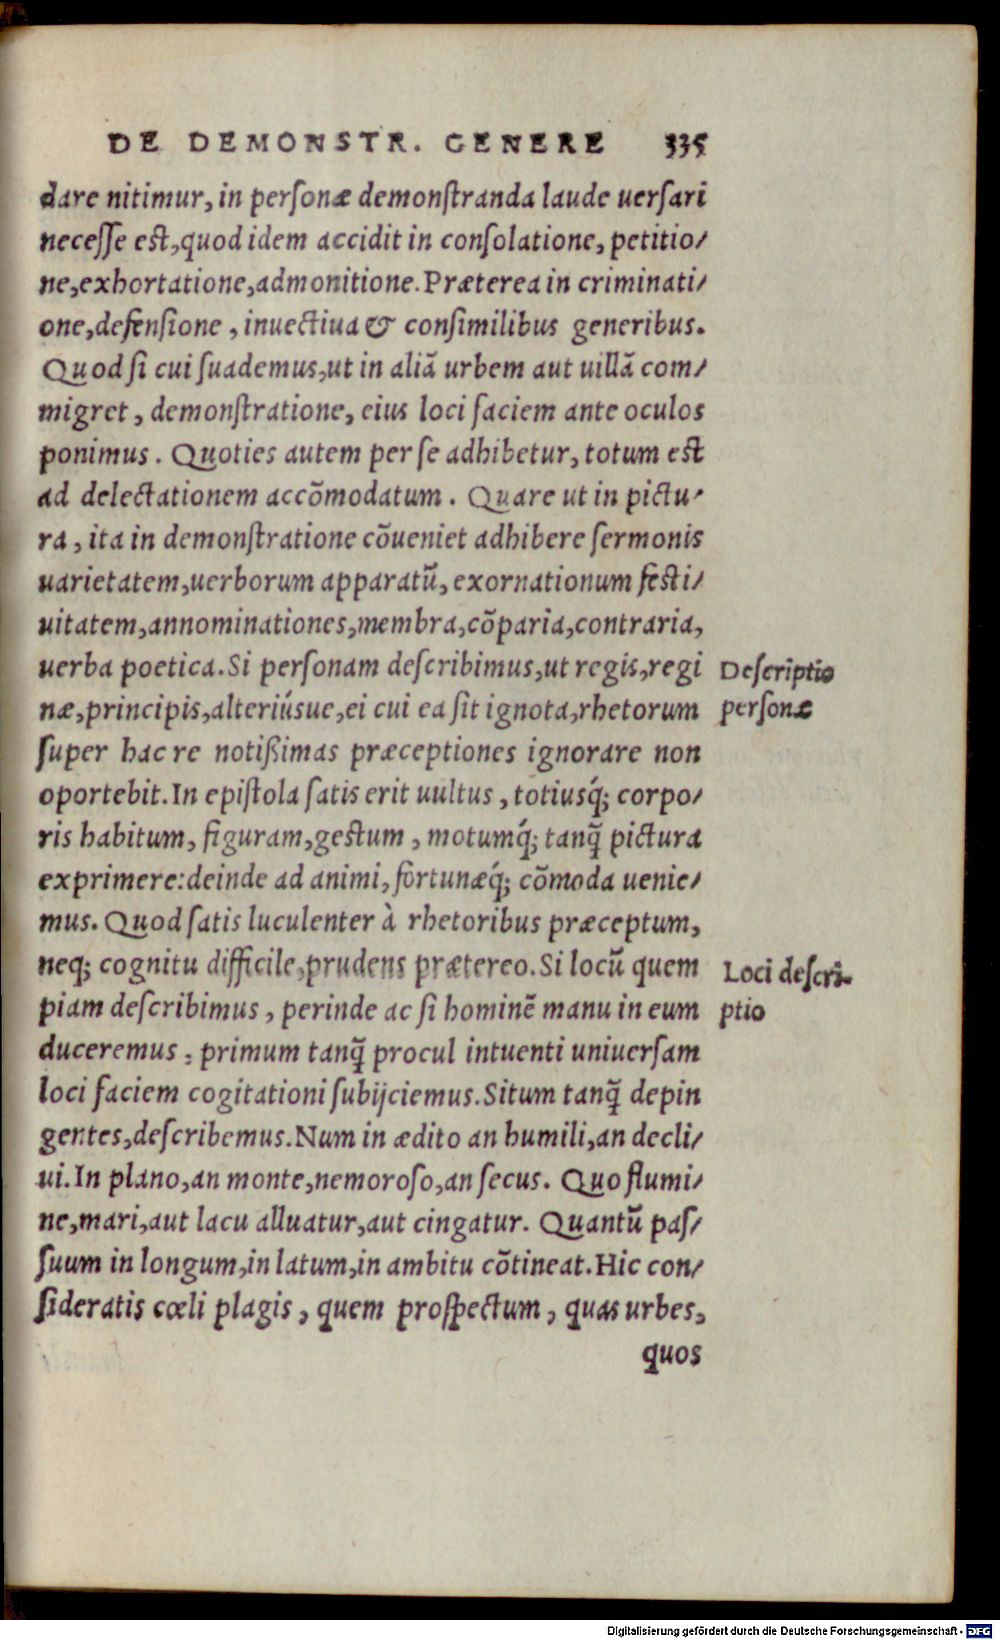 DE DEMONSTR. GENERE 335
dare nitimur, in personæ demonstranda laude uersari
necesse est, quod idem accidit in consolatione, petitio/
ne, exhortatione, admonitione. Præterea in criminati/
one, defensione, inuectiua & consimilibus generibus.
Quod si cui suademus, ut in aliā urbem aut uillā com/
migret, demonstratione, eius loci faciem ante oculos
ponimus. Quoties autem per se adhibetur, totum est
ad delectationem accōmodatum. Quare ut in pictu/
ra, ita in demonstratione cōueniet adhibere sermonis
uarietatem, uerborum apparatū, exornationum festi/
uitatem, annominationes, membra, cōparia, contraria,
uerba poetica. Si personam describimus, ut regis, regi
næ, principis, alteriúsue, ei cui ea sit ignota, rhetorum
super hac re notißimas præceptiones ignorare non
oportebit. In epistola satis erit uultus, totiusq́; corpo/
ris habitum, figuram, gestum, motumq́; tanq̃ pictura
exprimere: deinde ad animi, fortunæq́; cōmoda uenie/
mus. Quod satis luculenter à rhetoribus præceptum,
neq; cognitu difficile, prudens prætereo. Si locū quem
piam describimus, perinde ac si hominē manu in eum
duceremus: primum tanq̃ procul intuenti uniuersam
loci faciem cogitationi subijciemus. Situm tanq̃ depin
gentes, describemus. Num in ædito an humili, an decli/
ui. In plano, an monte, nemoroso, an secus. Quo flumi/
ne, mari, aut lacu alluatur, aut cingatur. Quantū pas/
suum in longum, in latum, in ambitu cōtineat. Hic con/
sideratis cœli plagis, quem prospectum, quas urbes,
quos
Descriptio
personæ
Loci descri-
ptio
Digitalisierung gefördert durch die Deutsche Forschungsgemeinschaft - DFG